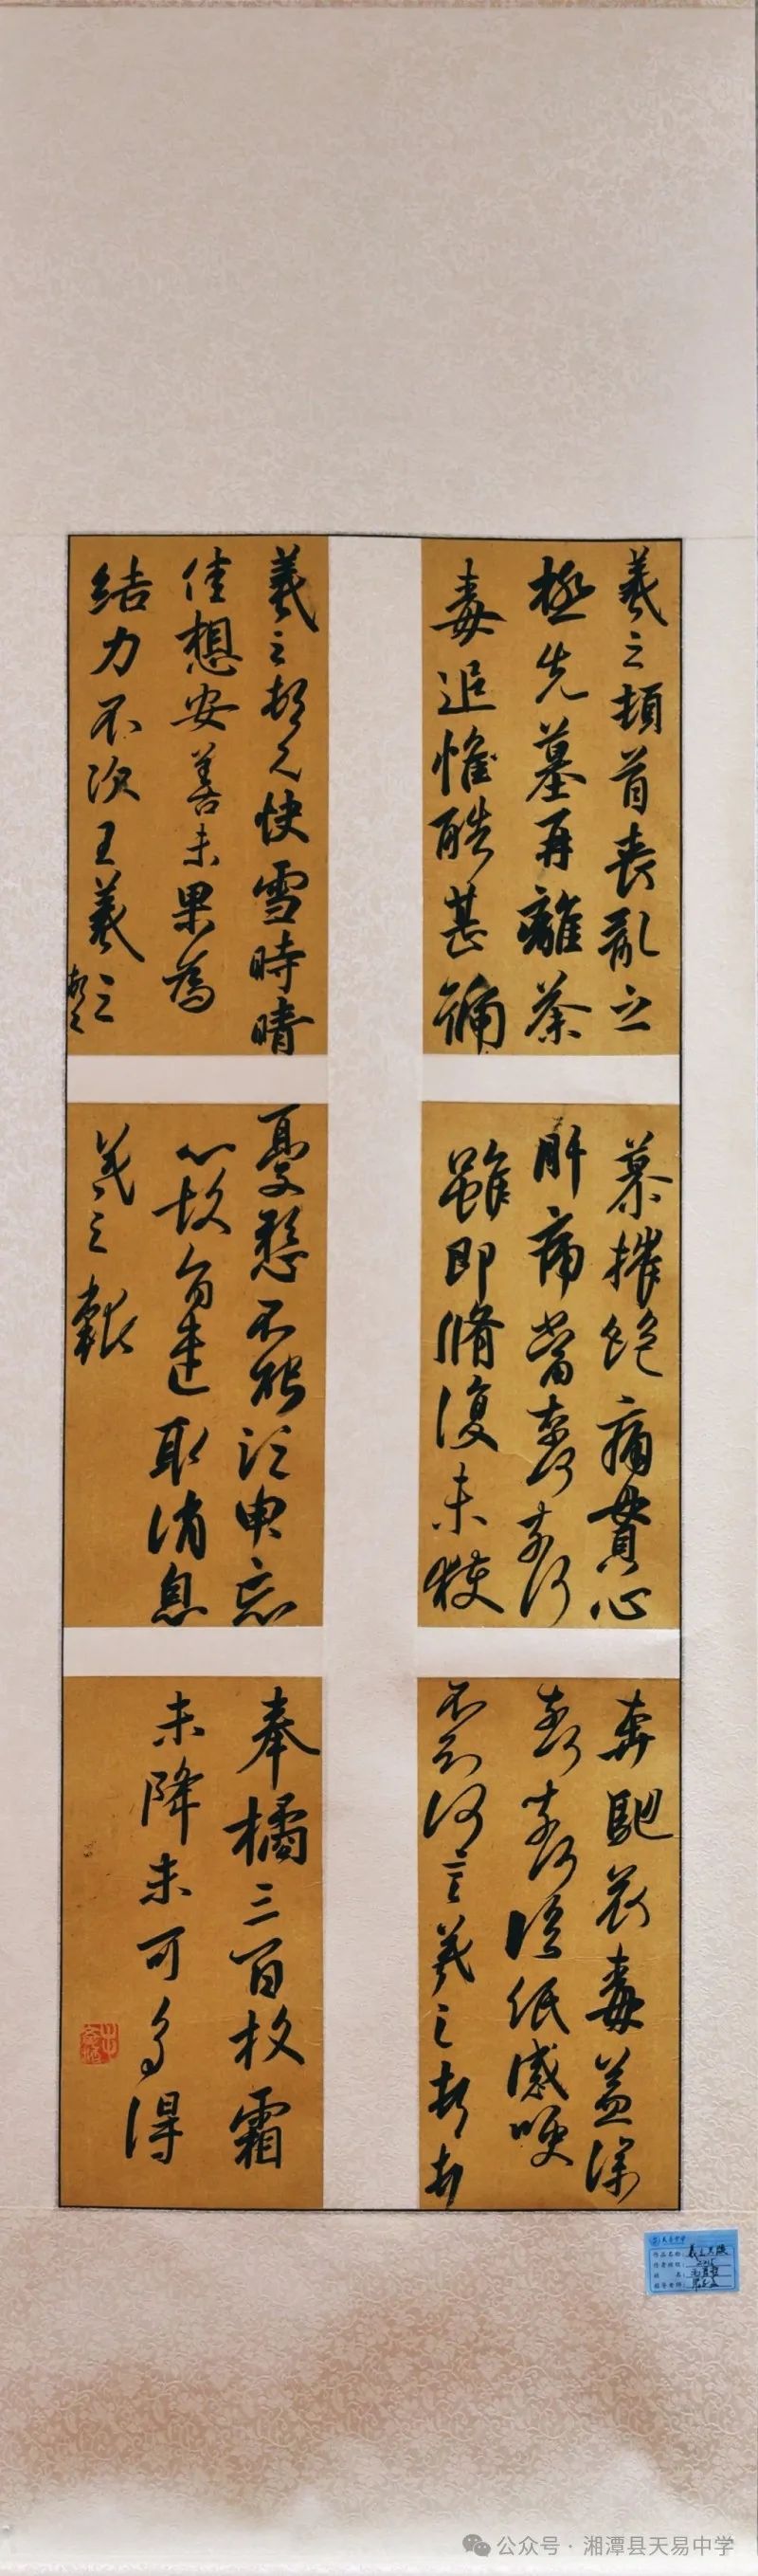 羲之頓首喪亂之
極先墓再離荼
毒追惟酷甚號
慕摧絕痛貫心
肝痛當奈何奈何
雖即脩復未獲
奔馳哀毒益深
奈何奈何臨紙感哽
不知何言羲之頓首
羲之頓首快雪時晴
佳想安善未果為
結力不次王羲之
頓首
憂懸不能須臾忘
心故旬遣取消息
羲之報
奉橘三百枚霜
未降未可多得
天易中学
作品名称:
作者班级:
姓 名:
指导老师:
公众号·湘潭县天易中学